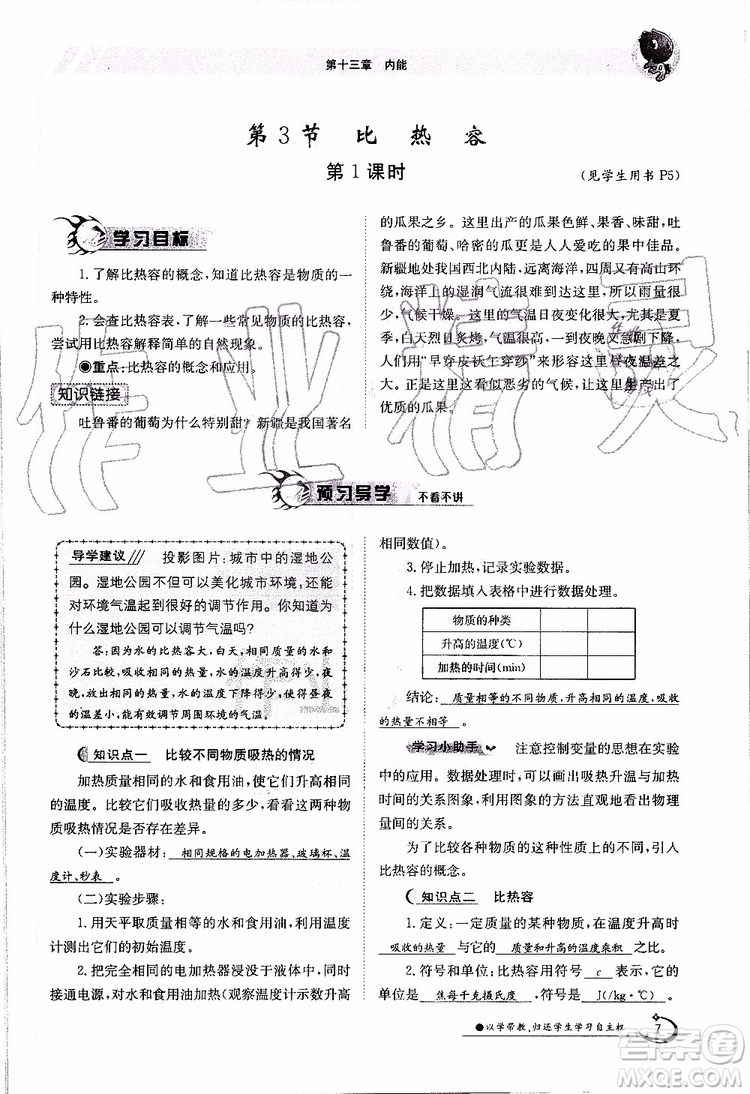 第十三章 内能
第3节 比热容
第1课时
(见学生用书 P5)
学习目标
1. 了解比热容的概念，知道比热容是物质的一
种特性。
2. 会查比热容表，了解一些常见物质的比热容，
尝试用比热容解释简单的自然现象。
●重点：比热容的概念和应用。
知识链接
吐鲁番的葡萄为什么特别甜? 新疆是我国著名
的瓜果之乡。这里出产的瓜果色鲜、果香、味甜，吐
鲁番的葡萄、哈密的瓜更是人人爱吃的果中佳品。
新疆地处我国西北内陆，远离海洋，四周又有高山环
绕，海洋上的湿润气流很难到达这里，所以雨量很
少，气候干燥。这里的气温日夜变化很大，尤其是夏
季，白天烈日炙烤，气温很高，但昼夜又急剧下降，
人们用“早穿皮袄午穿纱”来形容这里昼夜温差之
大。正是这一看似恶劣的气候，却使这里产出了
优质的瓜果。
预习导学 不看不讲
导学建议 投影图片：城市中的湿地公
园。湿地公园不但可以美化城市环境，还能
对环境气温起到很好的调节作用。你知道为
什么湿地公园可以调节气温吗?
答：因为水的比热容大，白天，相同质量的水和
沙石比较，吸收相同的热量，水的温度升高得少，夜
晚，放出相同的热量，水的温度下降得少，使得夜晚
的温差小，能有效调节周围环境的气温。
知识点一 比较不同物质吸热的情况
加热质量相同的水和食用油，使它们升高相同
的温度。比较它们吸收热量的多少，看看这两种物
质吸热情况是否存在差异。
(一)实验器材：相同规格的电加热器、玻璃杯、温
度计、秒表。
(二)实验步骤：
1. 用天平取质量相等的水和食用油，用温度
计测出它们的初始温度。
2. 把完全相同的电加热器浸没于液体中，同时
接通电源，对水和食用油加热(观察温度计示数升高
相同数值)。
3. 停止加热，记录实验数据。
4. 把数据填入表格中进行数据处理。
物质的种类
升高的温度(℃)
加热的时间(min)
结论：质量相等的不同物质，升高相同的温度，吸收
的热量不相等。
学习小助手 注意控制变量的思想在实验
中的应用。数据处理时，可以画出吸热升温与加热
时间的关系图象，利用图象的方法直观地看出物理
量间的关系。
为了比较各种物质的吸热本领的不同，引入
比热容的概念。
知识点二 比热容
1. 定义：一定质量的某种物质，在温度升高时
吸收的热量与它的质量和升高的温度乘积之比。
2. 符号和单位：比热容用符号 c 表示，它的
单位是 焦每千克摄氏度，符号是 J/(kg·℃)。
●以学带教，归还学生学习自主权
7
作业精灵
答案圈